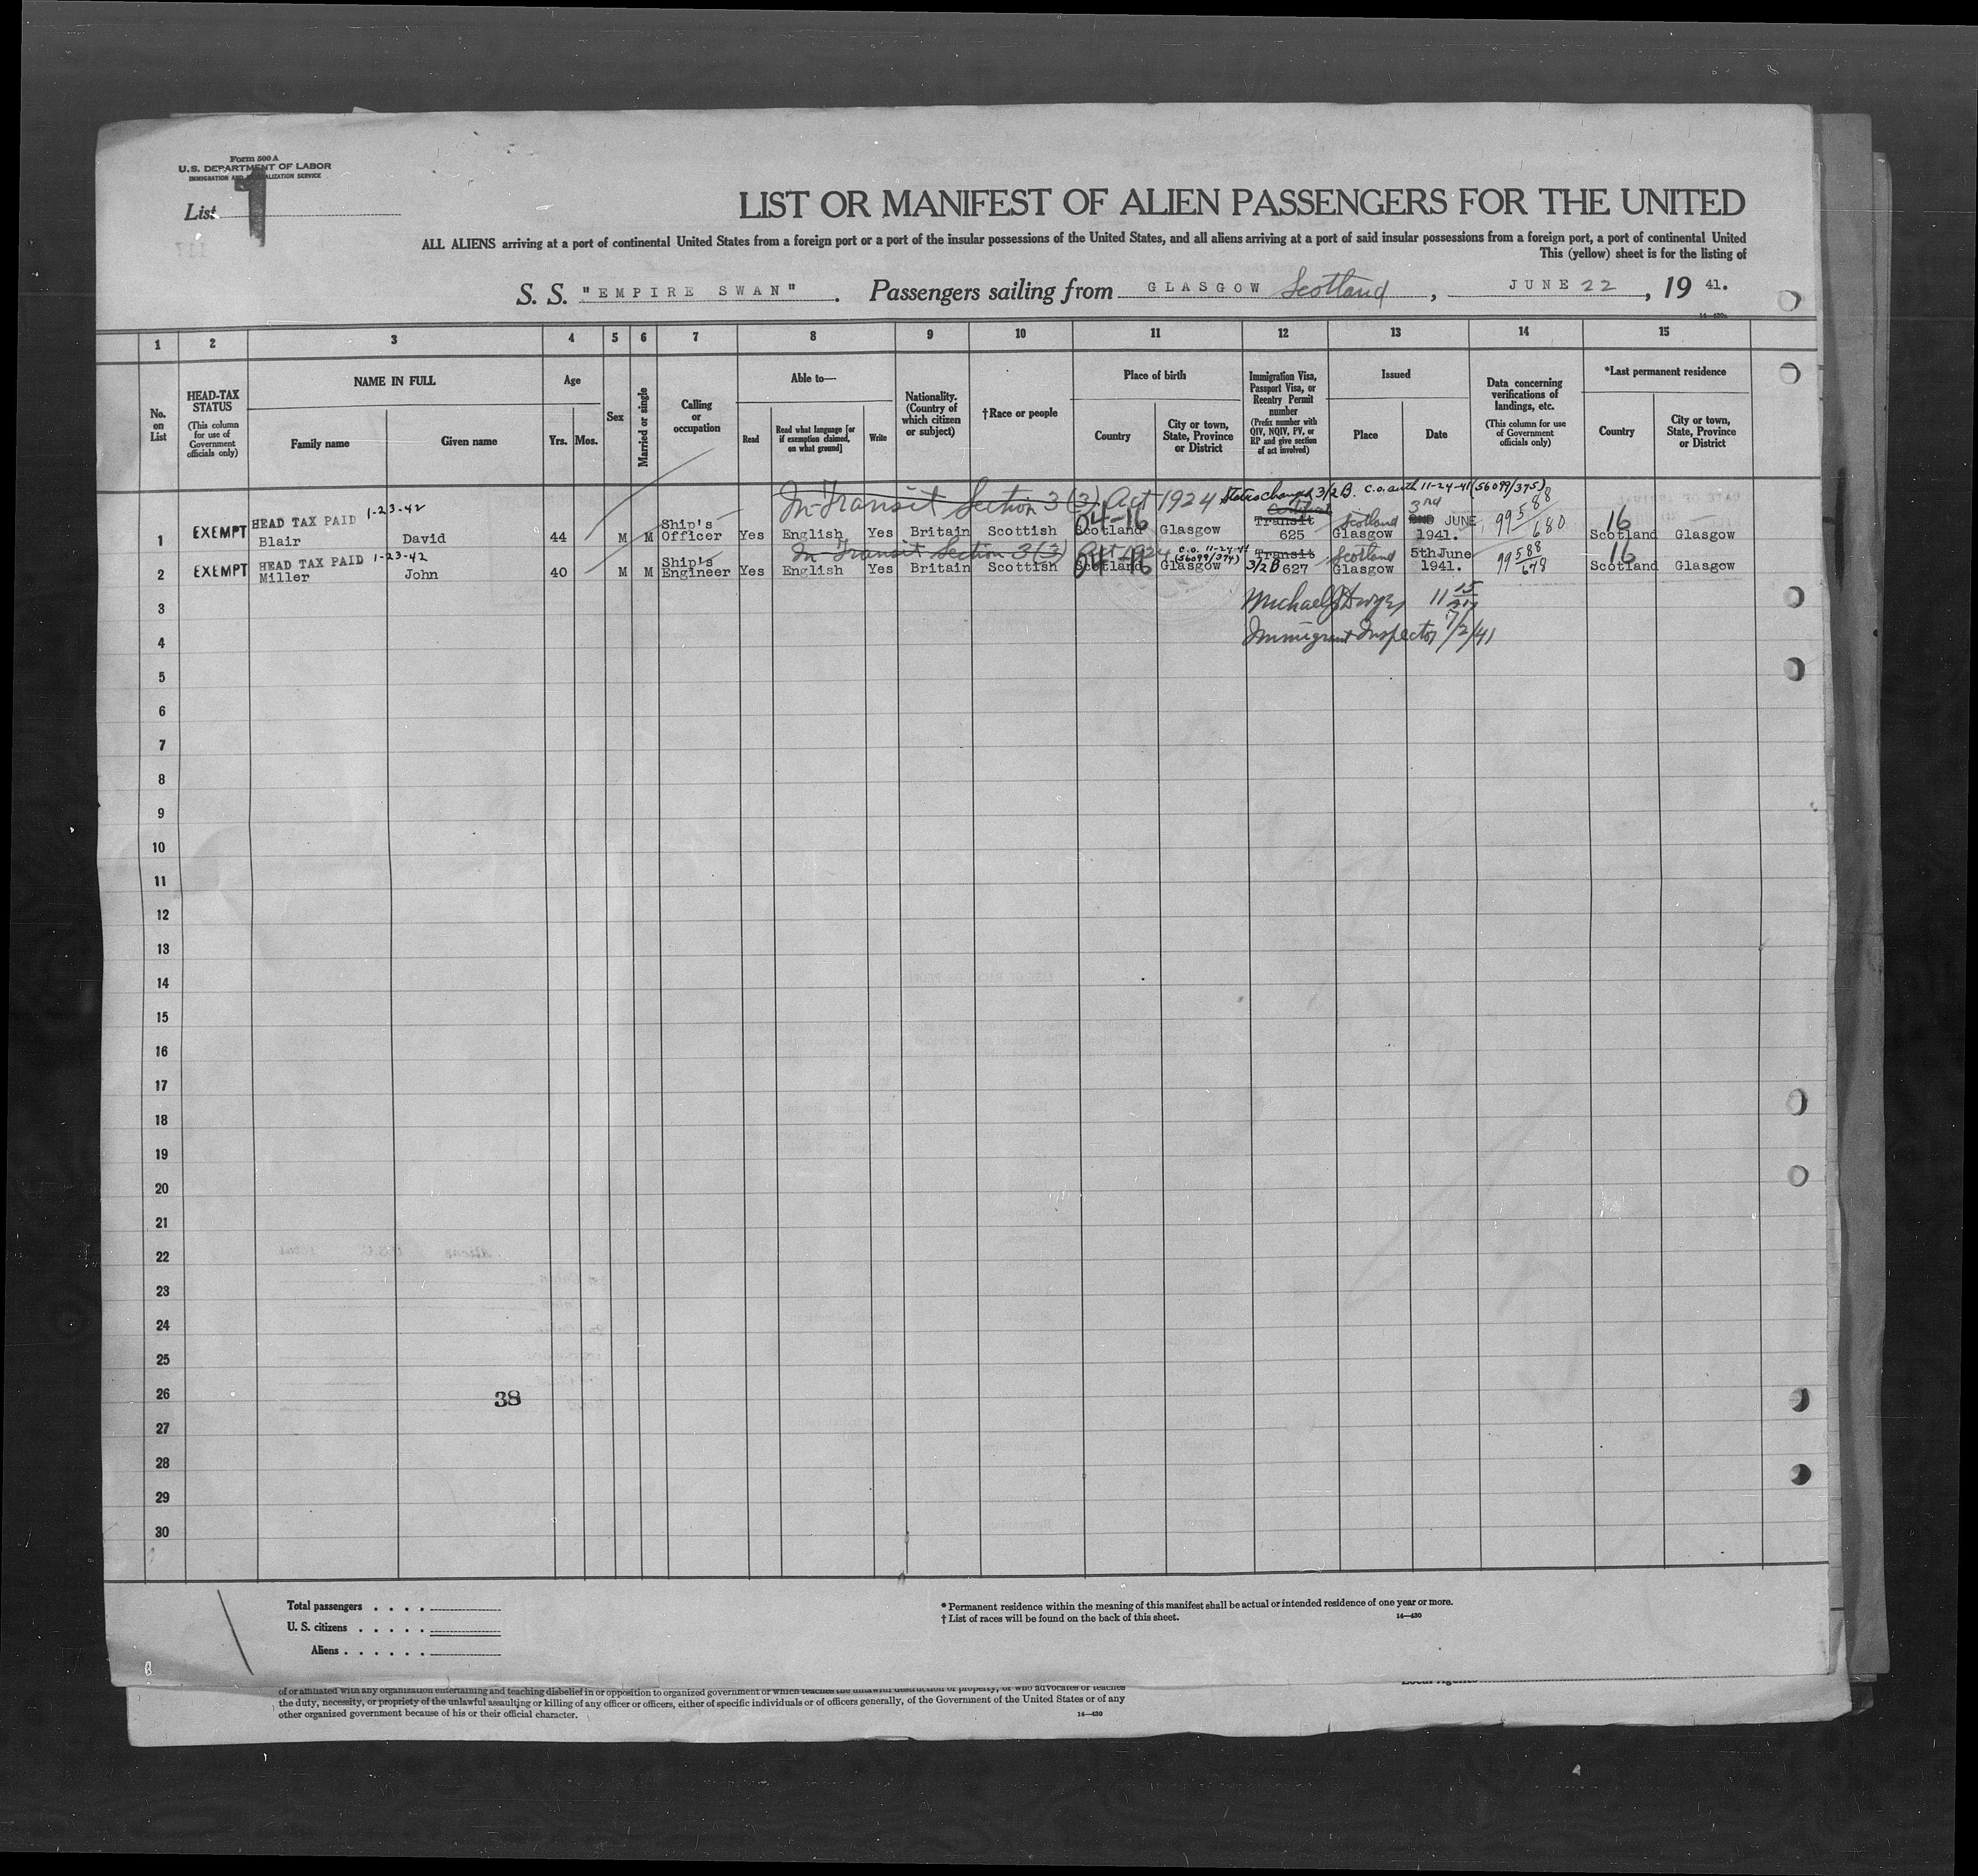 Form 500 A
U.S. DEPARTMENT OF LABOR
IMMIGRATION AND NATURALIZATION SERVICE
List 1
LIST OR MANIFEST OF ALIEN PASSENGERS FOR THE UNITED
ALL ALIENS arriving at a port of continental United States from a foreign port or a port of the insular possessions of the United States, and all aliens arriving at a port of said insular possessions from a foreign port, a port of continental United
This (yellow) sheet is for the listing of
S. S. "EMPIRE SWAN" . Passengers sailing from GLASGOW Scotland , JUNE 22 , 19 41.
1 2 3 4 5 6 7 8 9 10 11 12 13 14 15
No. on List
HEAD-TAX STATUS (This column for use of Government officials only)
NAME IN FULL
Family name Given name
Age
Yrs. Mos.
Sex
Married or single
Calling or occupation
Able to—
Read
Read what language [or if exemption claimed, on what ground]
Write
Nationality. (Country of which citizen or subject)
†Race or people
Place of birth
Country
City or town, State, Province or District
Immigration Visa, Passport Visa, or Reentry Permit number (Prefix number with QIV, NQIV, PV, or RP and give section of act involved)
Issued
Place Date
Data concerning verifications of landings, etc. (This column for use of Government officials only)
*Last permanent residence
Country
City or town, State, Province or District
In Transit Section 3 (3) Act 1924 Status changed 3/2 B. C.O. auth 11-24-41 (56099/375)
HEAD TAX PAID 1-23-42
1 EXEMPT Blair David 44 M M Ship's Officer Yes English Yes Britain Scottish 04-16 Scotland Glasgow Transit 625 Scotland Glasgow 3rd JUNE 1941. 99588/680 16 Scotland Glasgow
In Transit Section 3 (3) Act 1924 C.O. 11-24-41 (56099/374)
HEAD TAX PAID 1-23-42
2 EXEMPT Miller John 40 M M Ship's Engineer Yes English Yes Britain Scottish 04-16 Scotland Glasgow Transit 3/2 B 627 Scotland Glasgow 5th June 1941. 99588/678 16 Scotland Glasgow
3 Michael J Dwyer 11
4 Immigrant Inspector 7/2/41
5
6
7
8
9
10
11
12
13
14
15
16
17
18
19
20
21
22
23
24
25
26 38
27
28
29
30
Total passengers . . . .
U. S. citizens . . . . .
Aliens . . . . . .
* Permanent residence within the meaning of this manifest shall be actual or intended residence of one year or more.
† List of races will be found on the back of this sheet. 14—430
of or affiliated with any organization entertaining and teaching disbelief in or opposition to organized government or which teaches the unlawful destruction of property, or who advocates or teaches
the duty, necessity, or propriety of the unlawful assaulting or killing of any officer or officers, either of specific individuals or of officers generally, of the Government of the United States or of any
other organized government because of his or their official character. 14—430